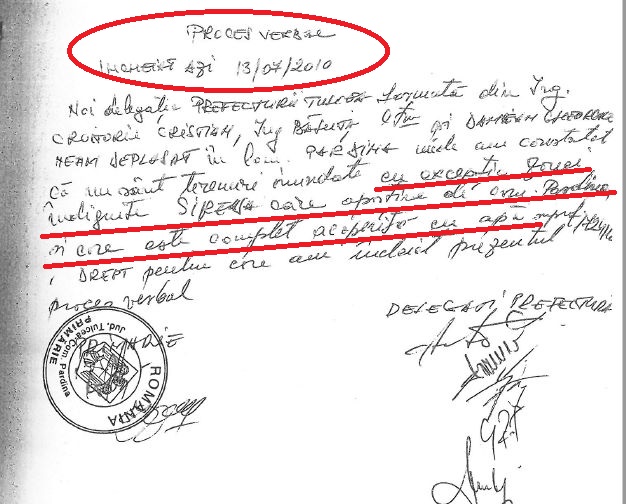 PROCES VERBAL
INCHEIAT AZI 13/07/2010
Noi delegații PREFECTURII TULCEA formată din Ing.
CROITORIU CRISTIAN, Ing și DAMIAN GHEORGHE
NEAM DEPLASAT în com. PARDINA unde am constatat
că nu sânt terenuri inundate cu excepția zonei
îndiguite SIREASA care aparține de com. Pardina
și care este complet acoperită cu apă
, DREPT pentru care am încheiat prezentul
proces verbal
DELEGAȚI PREFECTURA
PRIMĂRIE
ROMANIA
Jud. Tulcea Com. Pardina
PRIMĂRIE